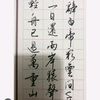 辞白帝彩雲間
一日還兩岸猿聲
輕舟已過萬重山